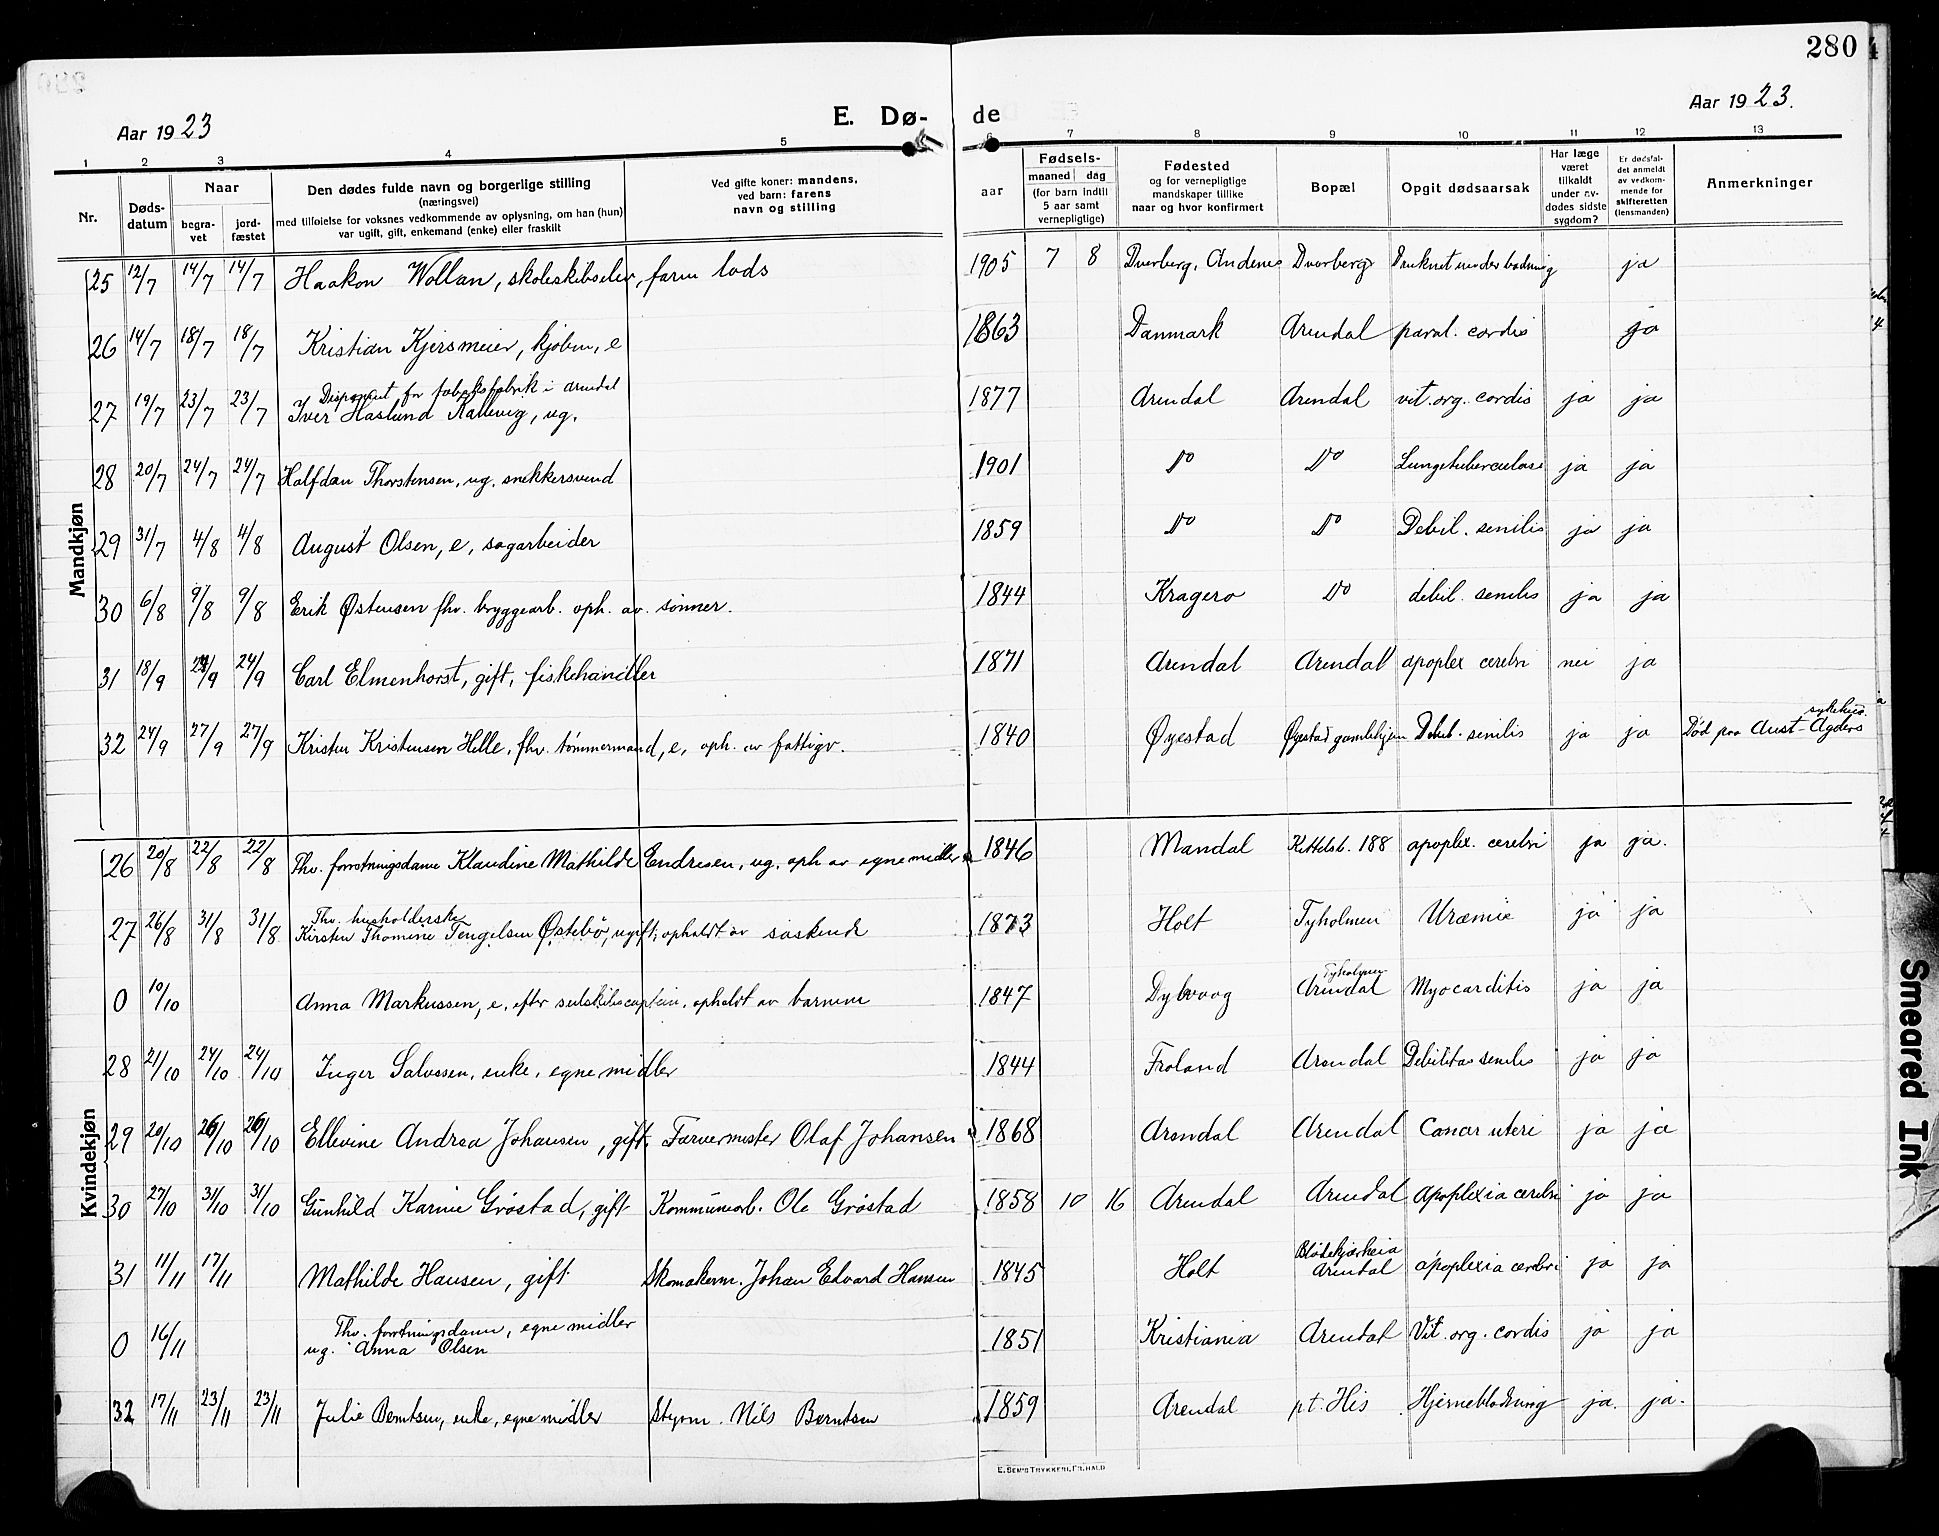 280
Aar 1923
E. Dø-
de
Aar 1923.
1 2 3 4 5 6 7 8 9 10 11 12 13
Nr.
Døds-
datum
Naar
begra-
vet
jord-
fæstet
Den dødes fulde navn og borgerlige stilling
(næringsvei)
med tilføielse for voksnes vedkommende av oplysning, om han (hun)
var ugift, gift, enkemand (enke) eller fraskilt
Ved gifte koner: mandens,
ved barn: farens
navn og stilling
Fødsels-
aar
maaned dag
(for barn indtil
5 aar samt
vernepligtige)
Fødested
og for vernepligtige
mandskaper tillike
naar og hvor konfirmert
Bopæl
Opgit dødsaarsak
Har læge
været
tilkaldt
under av-
dødes sidste
sygdom?
Er dødsfal-
det anmeldt
av vedkom-
mende for
skifteretten
(lensmanden)
Anmerkninger
Mandkjøn
25 12/7 14/7 14/7 Haakon Wollan, skoleskibselev, farm lods 1905 7 8 Dverberg, Andenes Dverberg Druknet under badning ja
26 14/7 18/7 18/7 Kristian Kjersmeier, kjøbm, e 1863 Danmark Arendal paral. cordis ja
Disponent for tobaksfabrik i Arendal
27 19/7 23/7 23/7 Iver Haslund Kallevig, ug. 1877 Arendal Arendal vit. org. cordis ja ja
28 20/7 24/7 24/7 Halfdan Thorstensen, ug. snekkersvend 1901 Do Do Lungetuberculose ja ja
29 31/7 4/8 4/8 August Olsen, e, sagarbeider 1859 Do Do Debil. senilis ja ja
30 6/8 9/8 9/8 Erik Østensen fhv. bryggearb. oph. av sønner. 1844 Kragerø Do debil. senilis ja ja
31 18/9 24/9 24/9 Carl Elmenhorst, gift, fiskehandler 1871 Arendal Arendal apoplex cerebri nei ja
32 24/9 27/9 27/9 Kristen Kristensen Helle, fhv. tømmermand, e, oph. av fattigv. 1840 Øyestad Øyestad gamlehjem Debil. senilis ja ja Død paa Aust-Agders
sykehus.
Kvindekjøn
26 20/8 22/8 22/8 Fhv. forretningsdame Klaudine Mathilde Endresen, ug. oph av egne midler 1846 Mandal Kittelsb. 188 apoplex. cerebri ja ja.
Fhv. husholderske
27 26/8 31/8 31/8 Kirsten Thomine Tengelsen Østebø, ugift, opholdt av søskende 1873 Holt Tyholmen Uræmie ja ja
Tyholmen
0 10/10 Anna Markussen, e. efter seilskibscaptein, opholdt av barnene 1847 Dybvaag Arendal Myocarditis ja ja
28 21/10 24/10 24/10 Inger Salvesen, enke, egne midler 1844 Froland Arendal Debilitas senilis ja ja
29 20/10 26/10 26/10 Ellevine Andrea Johansen, gift. Farvermester Olaf Johansen 1868 Arendal Arendal Cancer uteri ja ja
30 27/10 31/10 31/10 Gunhild Karine Grøstad, gift Kommunearb. Ole Grøstad 1858 10 16 Arendal Arendal Apoplexia cerebri ja ja
Blødekjærheia
31 11/11 17/11 Mathilde Hansen, gift Skomakerm. Johan Edvard Hansen 1845 Holt Arendal apoplexia cerebri ja ja
Fhv. forretningsdame, egne midler
0 16/11 ug. Anna Olsen 1851 Kristiania Arendal Vit. org. cordis ja ja
32 17/11 23/11 23/11 Julie Berntsen, enke, egne midler Styrm. Nils Berntsen 1859 Arendal pt. His Hjerneblødning ja. ja.
E. SEM'S TRYKKERI, FR.HALD
Smeared Ink